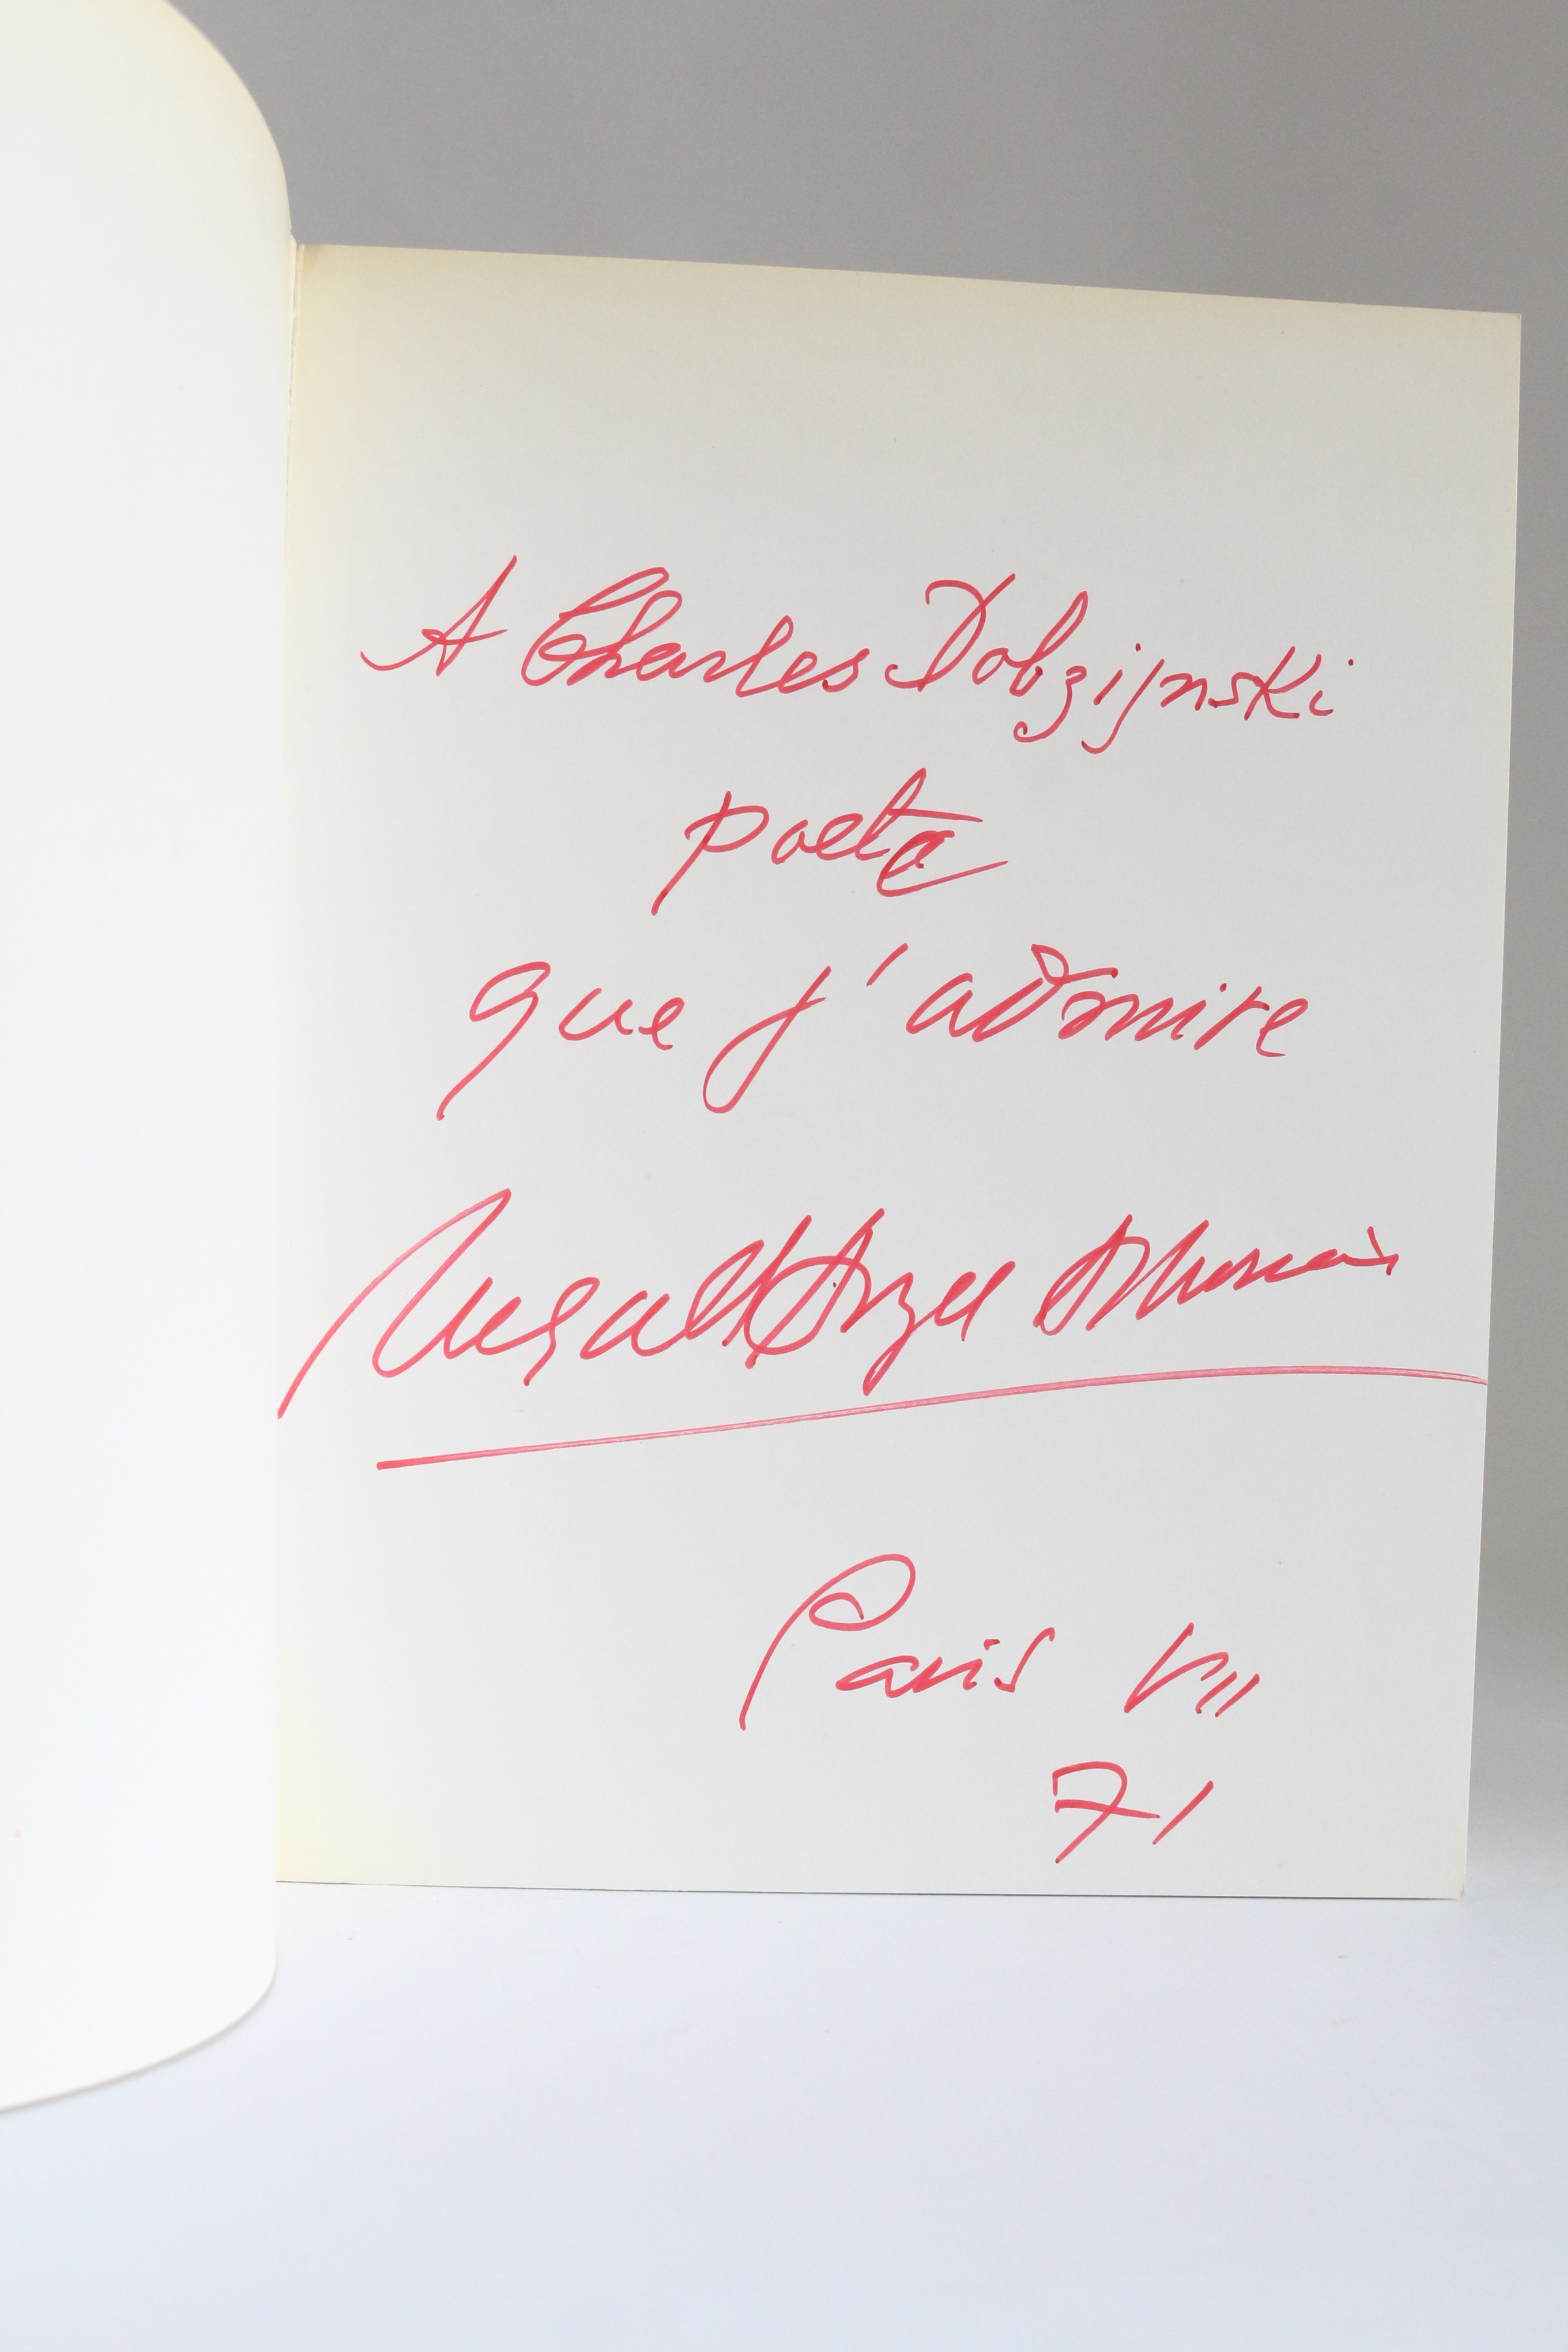 A Charles Dobzijnski
poete
que j'admire
Miguel Angel Asturias
Paris VII
71